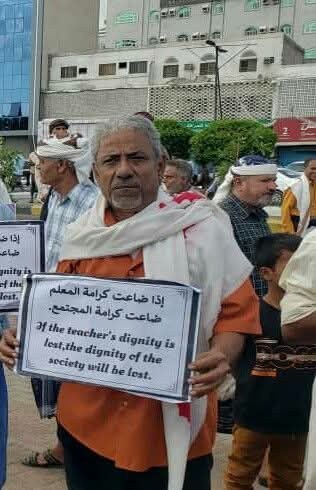 إذا ضاعت كرامة المعلم
ضاعت كرامة المجتمع.
If the teacher's dignity is
lost,the dignity of the
society will be lost.
إذا ض
ضاعت
2